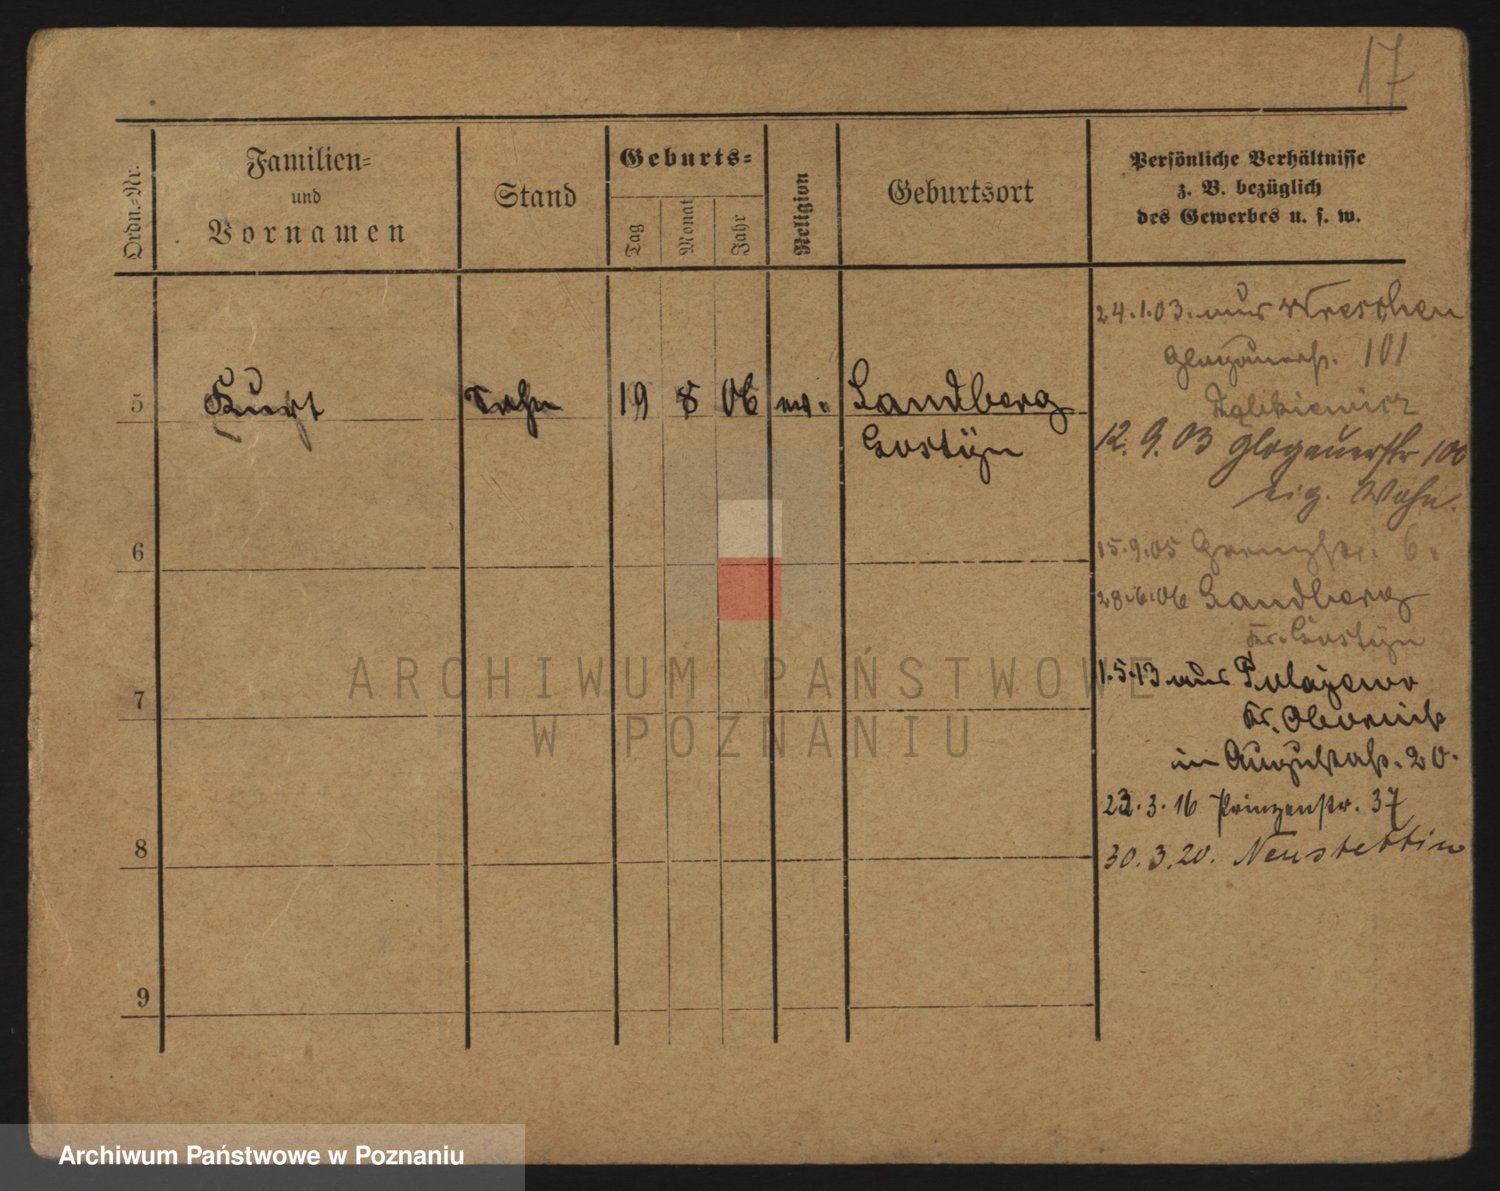 17
Ordn.-Nr.
Familien-
und
Vornamen
Stand
Geburts-
Tag
Monat
Jahr
Religion
Geburtsort
Persönliche Verhältnisse
z. B. bezüglich
des Gewerbes u. s. w.
5
Kurt
Sohn
19
8
06
ev.
Sandberg
Gostÿn
6
7
8
9
24.1.03. aus Wreschen
Glogauerstr. 101
12.9.03 Glogauerstr 100
eig. Wohn.
15.9.05 Grenzstr. 6.
28.6.06 Sandberg
Kr. Gostÿn
1.5.13 aus Polajewo
Kr. Obornik
in Augustastr. 20.
22.3.16 Prinzenstr. 37
30.3.20. Neustettin
ARCHIWUM PAŃSTWOWE
W POZNANIU
Archiwum Państwowe w Poznaniu